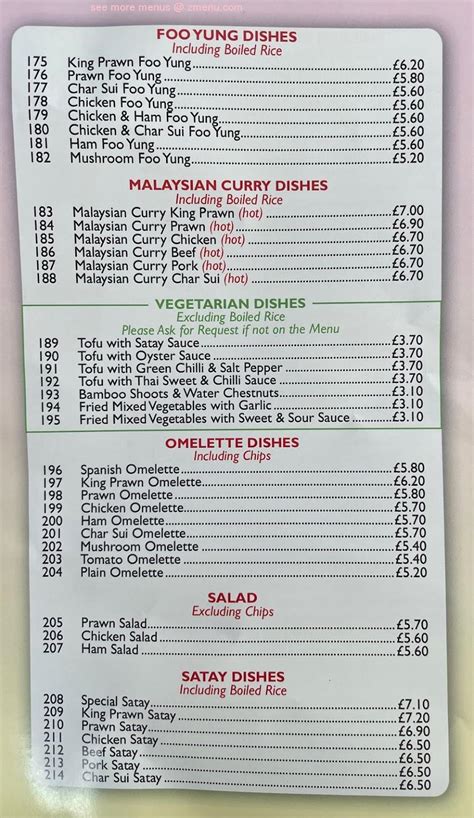 see more menus @ zmenu.com
FOO YUNG DISHES
Including Boiled Rice
175 King Prawn Foo Yung £6.20
176 Prawn Foo Yung £5.80
177 Char Sui Foo Yung £5.60
178 Chicken Foo Yung £5.60
179 Chicken & Ham Foo Yung £5.60
180 Chicken & Char Sui Foo Yung £5.60
181 Ham Foo Yung £5.60
182 Mushroom Foo Yung £5.20
MALAYSIAN CURRY DISHES
Including Boiled Rice
183 Malaysian Curry King Prawn (hot) £7.00
184 Malaysian Curry Prawn (hot) £6.90
185 Malaysian Curry Chicken (hot) £6.70
186 Malaysian Curry Beef (hot) £6.70
187 Malaysian Curry Pork (hot) £6.70
188 Malaysian Curry Char Sui (hot) £6.70
VEGETARIAN DISHES
Excluding Boiled Rice
Please Ask for Request if not on the Menu
189 Tofu with Satay Sauce £3.70
190 Tofu with Oyster Sauce £3.70
191 Tofu with Green Chilli & Salt Pepper £3.70
192 Tofu with Thai Sweet & Chilli Sauce £3.70
193 Bamboo Shoots & Water Chestnuts £3.10
194 Fried Mixed Vegetables with Garlic £3.10
195 Fried Mixed Vegetables with Sweet & Sour Sauce £3.10
OMELETTE DISHES
Including Chips
196 Spanish Omelette £5.80
197 King Prawn Omelette £6.20
198 Prawn Omelette £5.80
199 Chicken Omelette £5.70
200 Ham Omelette £5.70
201 Char Sui Omelette £5.70
202 Mushroom Omelette £5.40
203 Tomato Omelette £5.40
204 Plain Omelette £5.20
SALAD
Excluding Chips
205 Prawn Salad £5.70
206 Chicken Salad £5.60
207 Ham Salad £5.60
SATAY DISHES
Including Boiled Rice
208 Special Satay £7.10
209 King Prawn Satay £7.20
210 Prawn Satay £6.90
211 Chicken Satay £6.50
212 Beef Satay £6.50
213 Pork Satay £6.50
214 Char Sui Satay £6.50